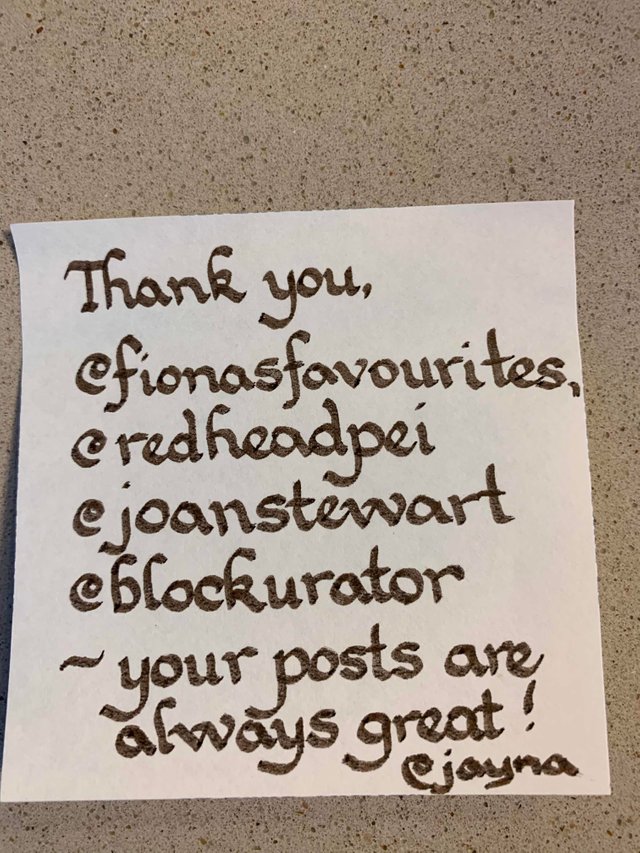 Thank you,
@fionasfavourites,
@redheadpei
@joanstewart
@blockurator
~ your posts are
always great!
@jayna